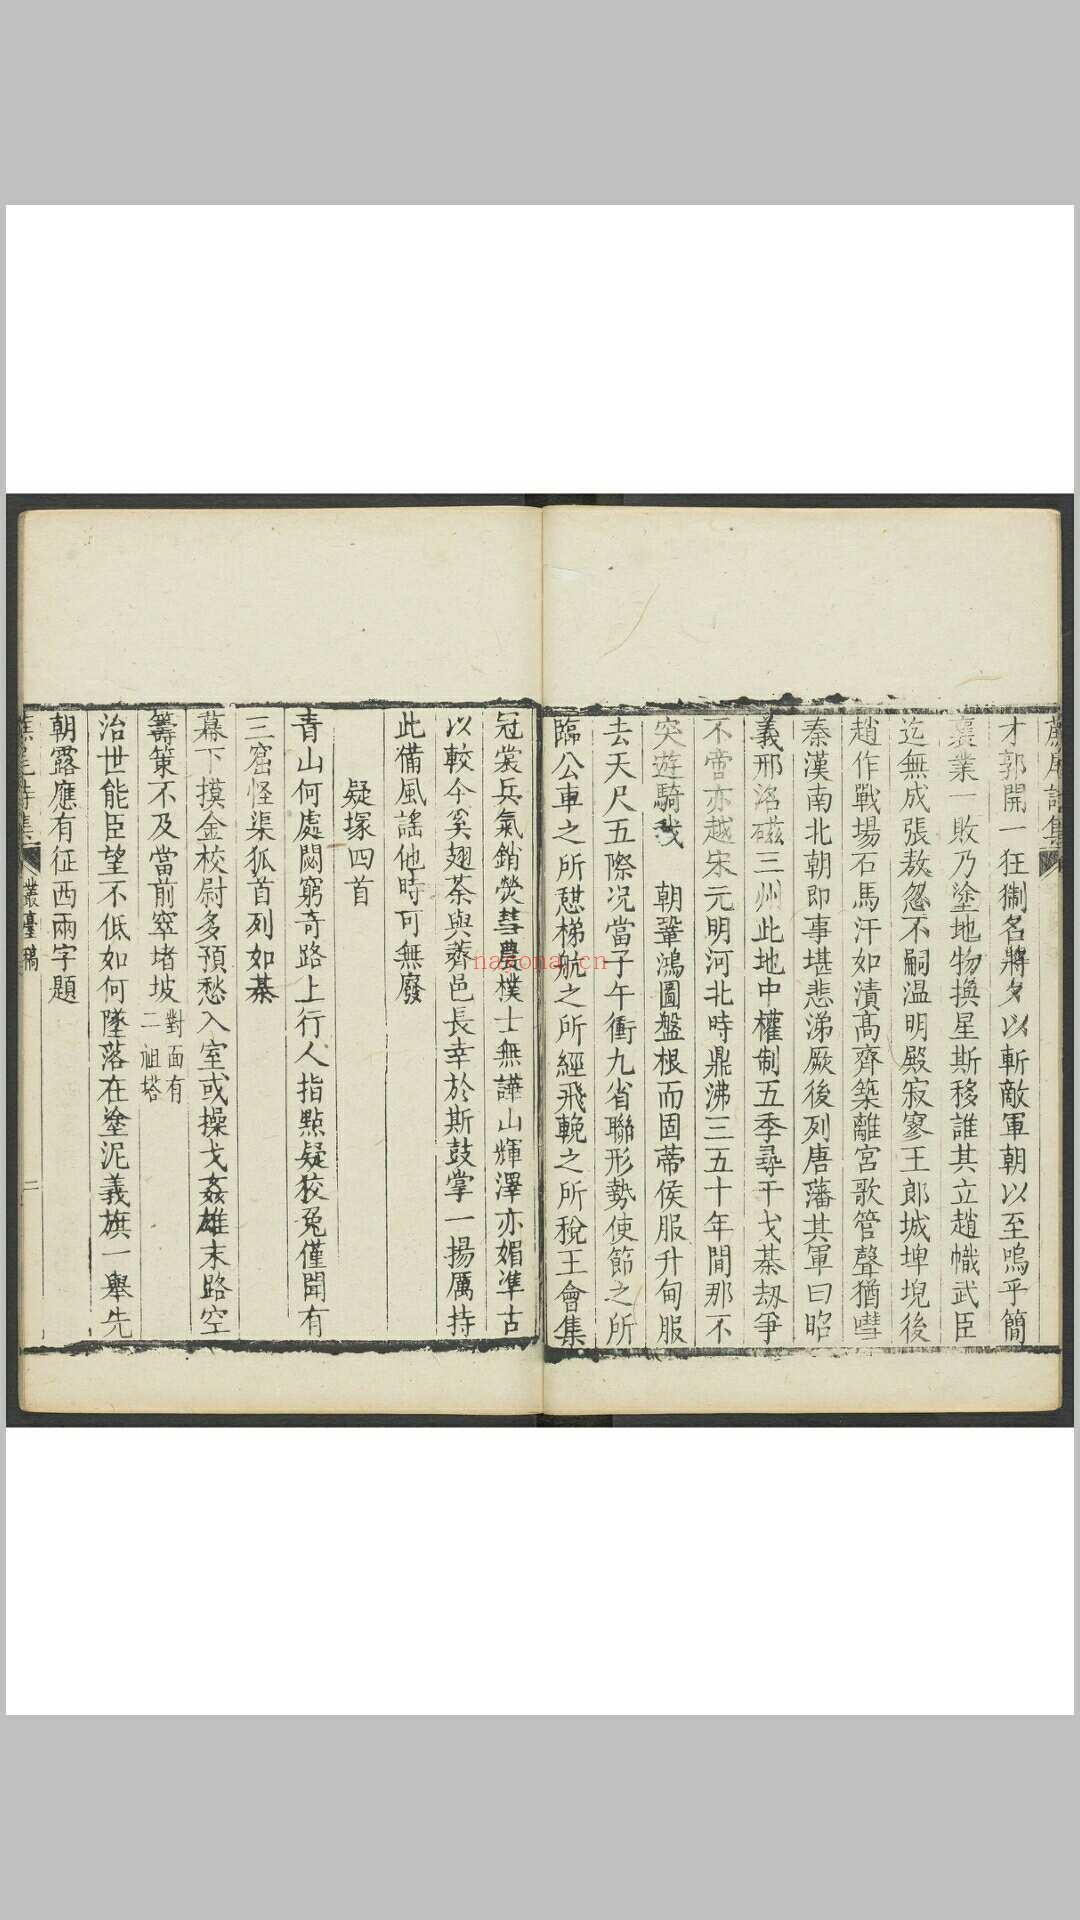 才郭開一狂猘名將夕以斬敵軍朝以至嗚乎簡
襄業一敗乃塗地物換星斯移誰其立趙幟武臣
迄無成張敖忽不嗣温明殿寂寥王郎城埤堄後
趙作戰場石馬汗如漬髙齊築離宮歌管聲猶嘒
秦漢南北朝即事堪悲涕厥後列唐藩其軍曰昭
義邢洺磁三州此地中權制五季尋干戈棊劫爭
不啻亦越宋元明河北時鼎沸三五十年間那不
突遊騎我 朝鞏鴻圖盤根而固蒂侯服升甸服
去天尺五際况當子午衝九省聯形勢使節之所
臨公車之所憇梯航之所經飛輓之所稅王會集
冠裳兵氣銷熒彗農樸士無譁山輝澤亦媚準古
以較今奚翅荼與薺邑長幸於斯鼓掌一揚厲持
此備風謠他時可無廢
疑塚四首
青山何處閟窮奇路上行人指點疑狡兔僅聞有
三窟怪渠狐首列如棊
幕下摸金校尉多預愁入室或操戈姦雄末路空
籌策不及當前窣堵坡
對面有
二祖塔
治世能臣望不低如何墜落在塗泥義旗一舉先
朝露應有征西兩字題
叢臺稿
二
nayona.cn